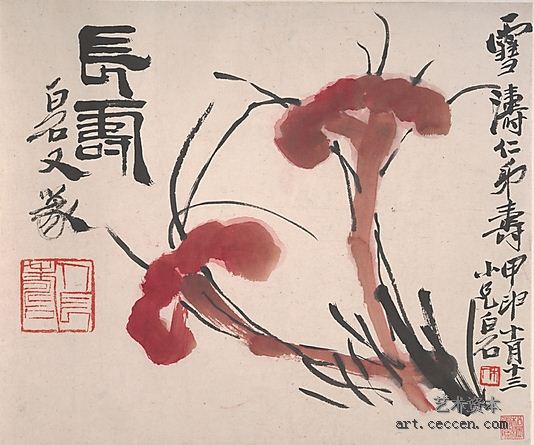 雪濤仁弟壽甲申十月十三
小兄白石
長壽
白石又篆
人長壽
艺术资本
art.ceccen.com